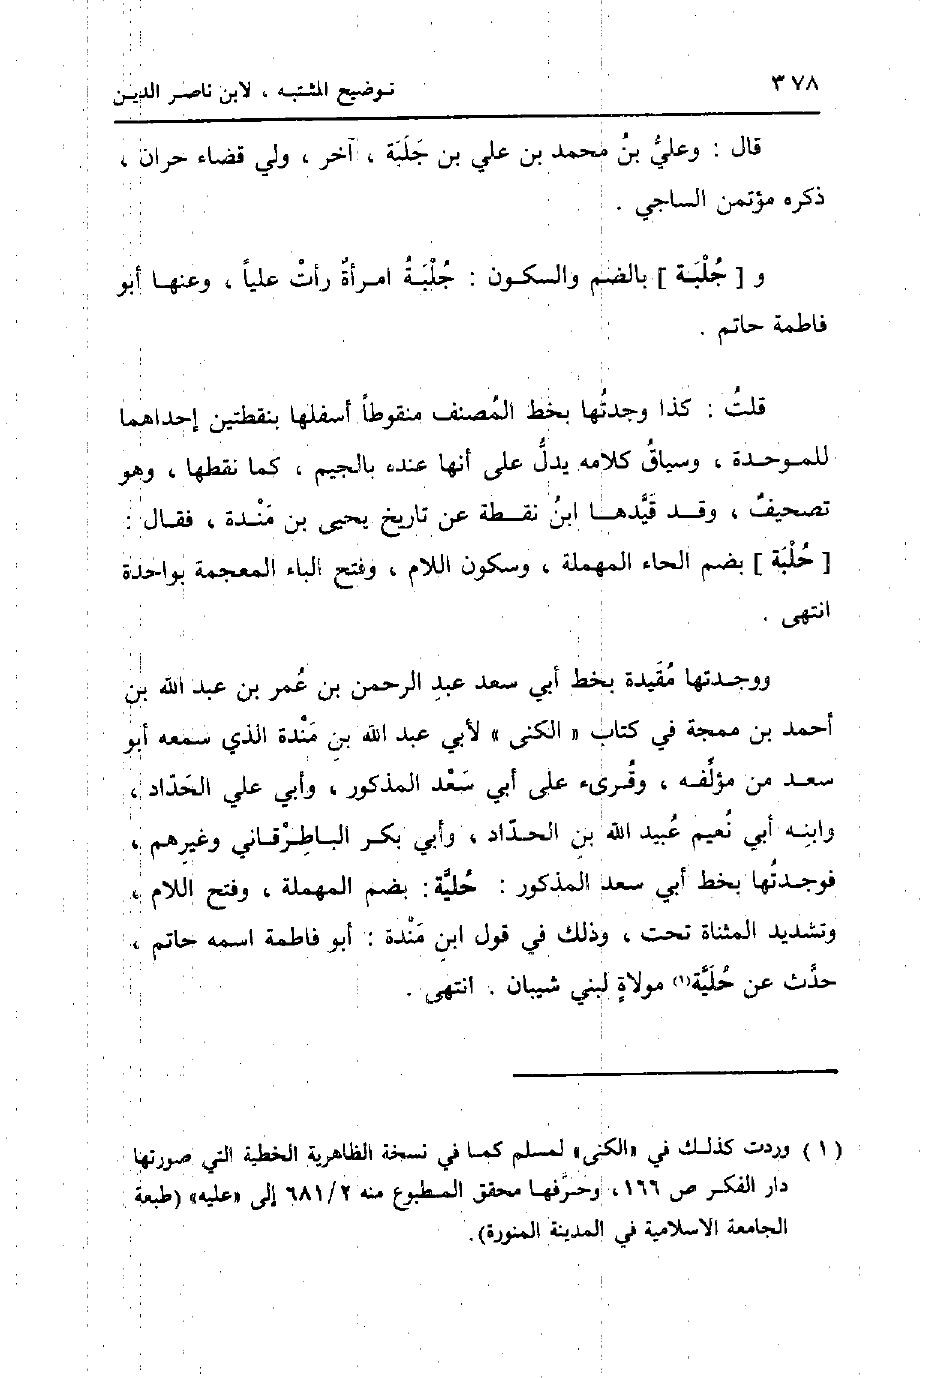 ٣٧٨
تـوضيح المشتبه ، لابن ناصر الدين
قال : وعليُّ بنُ محمد بن علي بن جَلَبَة ، آخر ، ولي قضاء حران ،
ذكره مؤتمن الساجي .
و [ جُلْبَـة ] بالضم والسكـون : جُلْبَـةُ امـرأةٌ رأتْ علياً ، وعنهـا أبو
فاطمة حاتم .
قلتُ : كذا وجدتُها بخط المُصنف منقوطاً أسفلها بنقطتين إحداهما
للمـوحـدة ، وسياقُ كلامه يدلُّ على أنها عنده بالجيم ، كما نقطها ، وهو
تصحيفٌ ، وقـد قَيَّدهـا ابنُ نقـطة عن تاريخ يحيى بن مَنْـدة ، فقـال :
[ حُلْبَة ] بضم الحاء المهملة ، وسكون اللام ، وفتح الباء المعجمة بواحدة
انتهى .
ووجـدتها مُقَيدة بخط أبي سعد عبدِ الرحمن بن عُمر بن عبد الله بن
أحمد بن ممجة في كتابِ « الكنى » لأبي عبد الله بنِ مَنْدة الذي سمعه أبو
سعـد من مؤلَّفـه ، وقُرىء على أبي سَعْد المذكور ، وأبي علي الحَدّاد ،
وابنِـه أبي نُعيم عُبيد الله بنِ الحـدّاد ، وأبي بكـر البـاطِـرْقـاني وغيرِهم ،
فوجـدتُها بخط أبي سعد المذكور : حُليَّة: بضم المهملة ، وفتح اللام ،
وتشديد المثناة تحت ، وذلك في قول ابنِ مَنْدة : أبو فاطمة اسمه حاتم ،
حدَّث عن حُلَيَّة(١) مولاةٍ لبني شيبان . انتهى .
( ١ ) وردت كذلـك في «الكنى» لمسلم كمـا في نسخة الظاهرية الخطية التي صورتها
دار الفكـر ص ١٦٦، وحرَّفهـا محقق المـطبوع منه ٦٨١/٢ إلى «عليه» (طبعة
الجامعة الاسلامية في المدينة المنورة).